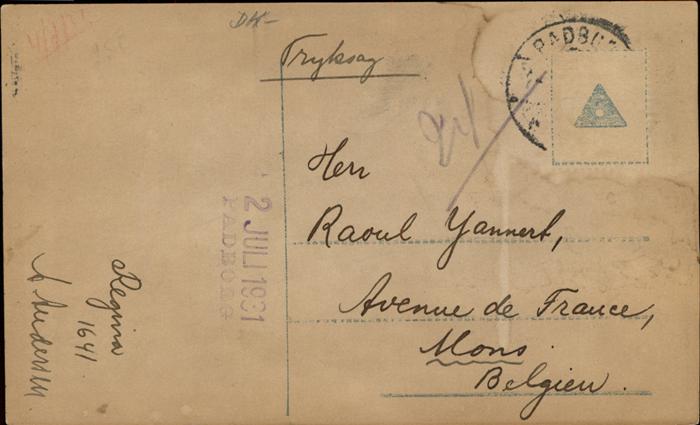 DK-
Tryksag
PADBO
Herr
Raoul Yannert,
Avenue de France,
Mons
Belgien.
2 JULI 1931
PADBORG
Regina
1641
A Andersen